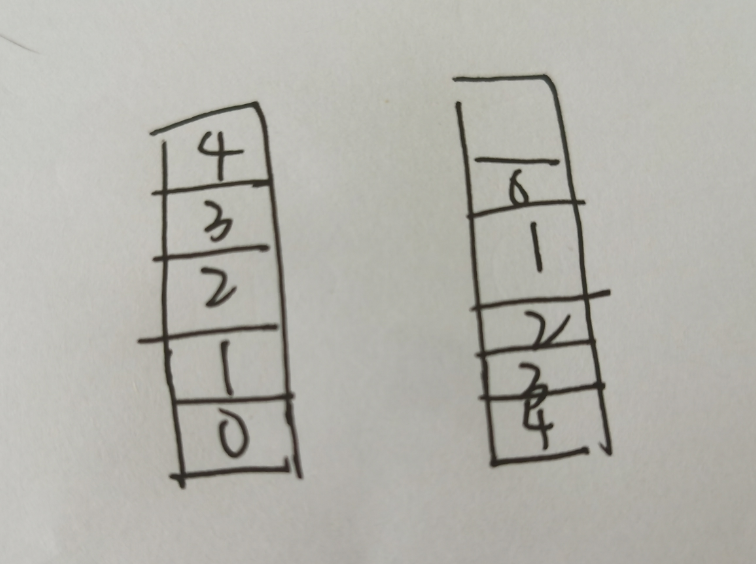 4
3
2
1
0
0
1
2
3
4